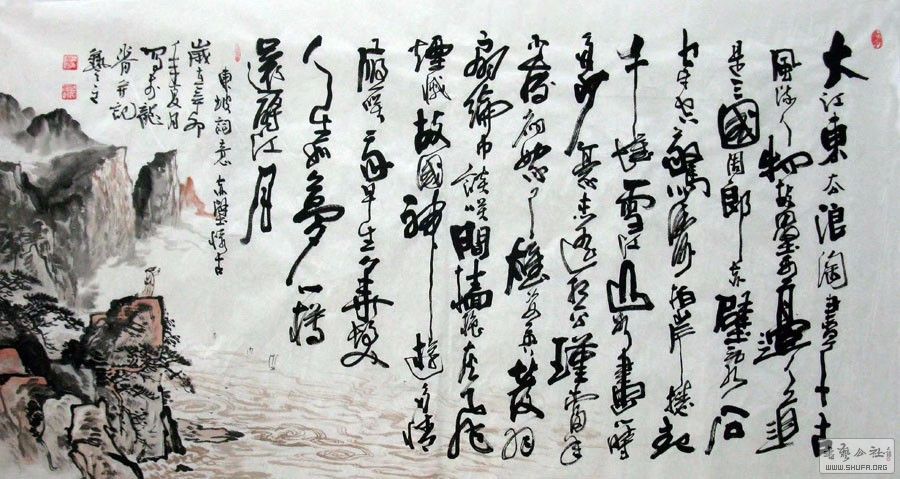 大江東去浪淘盡千古
風流人物故壘西邊人道
是三國周郎赤壁亂石
穿空驚濤拍岸捲起
千堆雪江山如畫一時
多少豪傑遙想公瑾當年
小喬初嫁了雄姿英發羽
扇綸巾談笑間檣櫓灰飛
煙滅故國神遊多情
應笑我早生華髮
人生如夢一樽
還酹江月
東坡詞意 赤壁懷古
歲在辛卯
夏月
并記
WWW.SHUFA.ORG